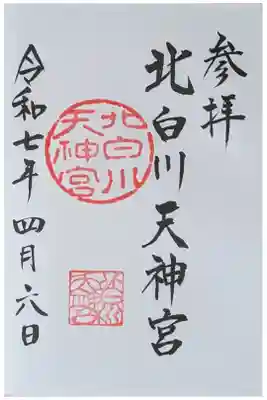 参拝
北白川天神宮
北白川
天神宮
令和七年四月六日